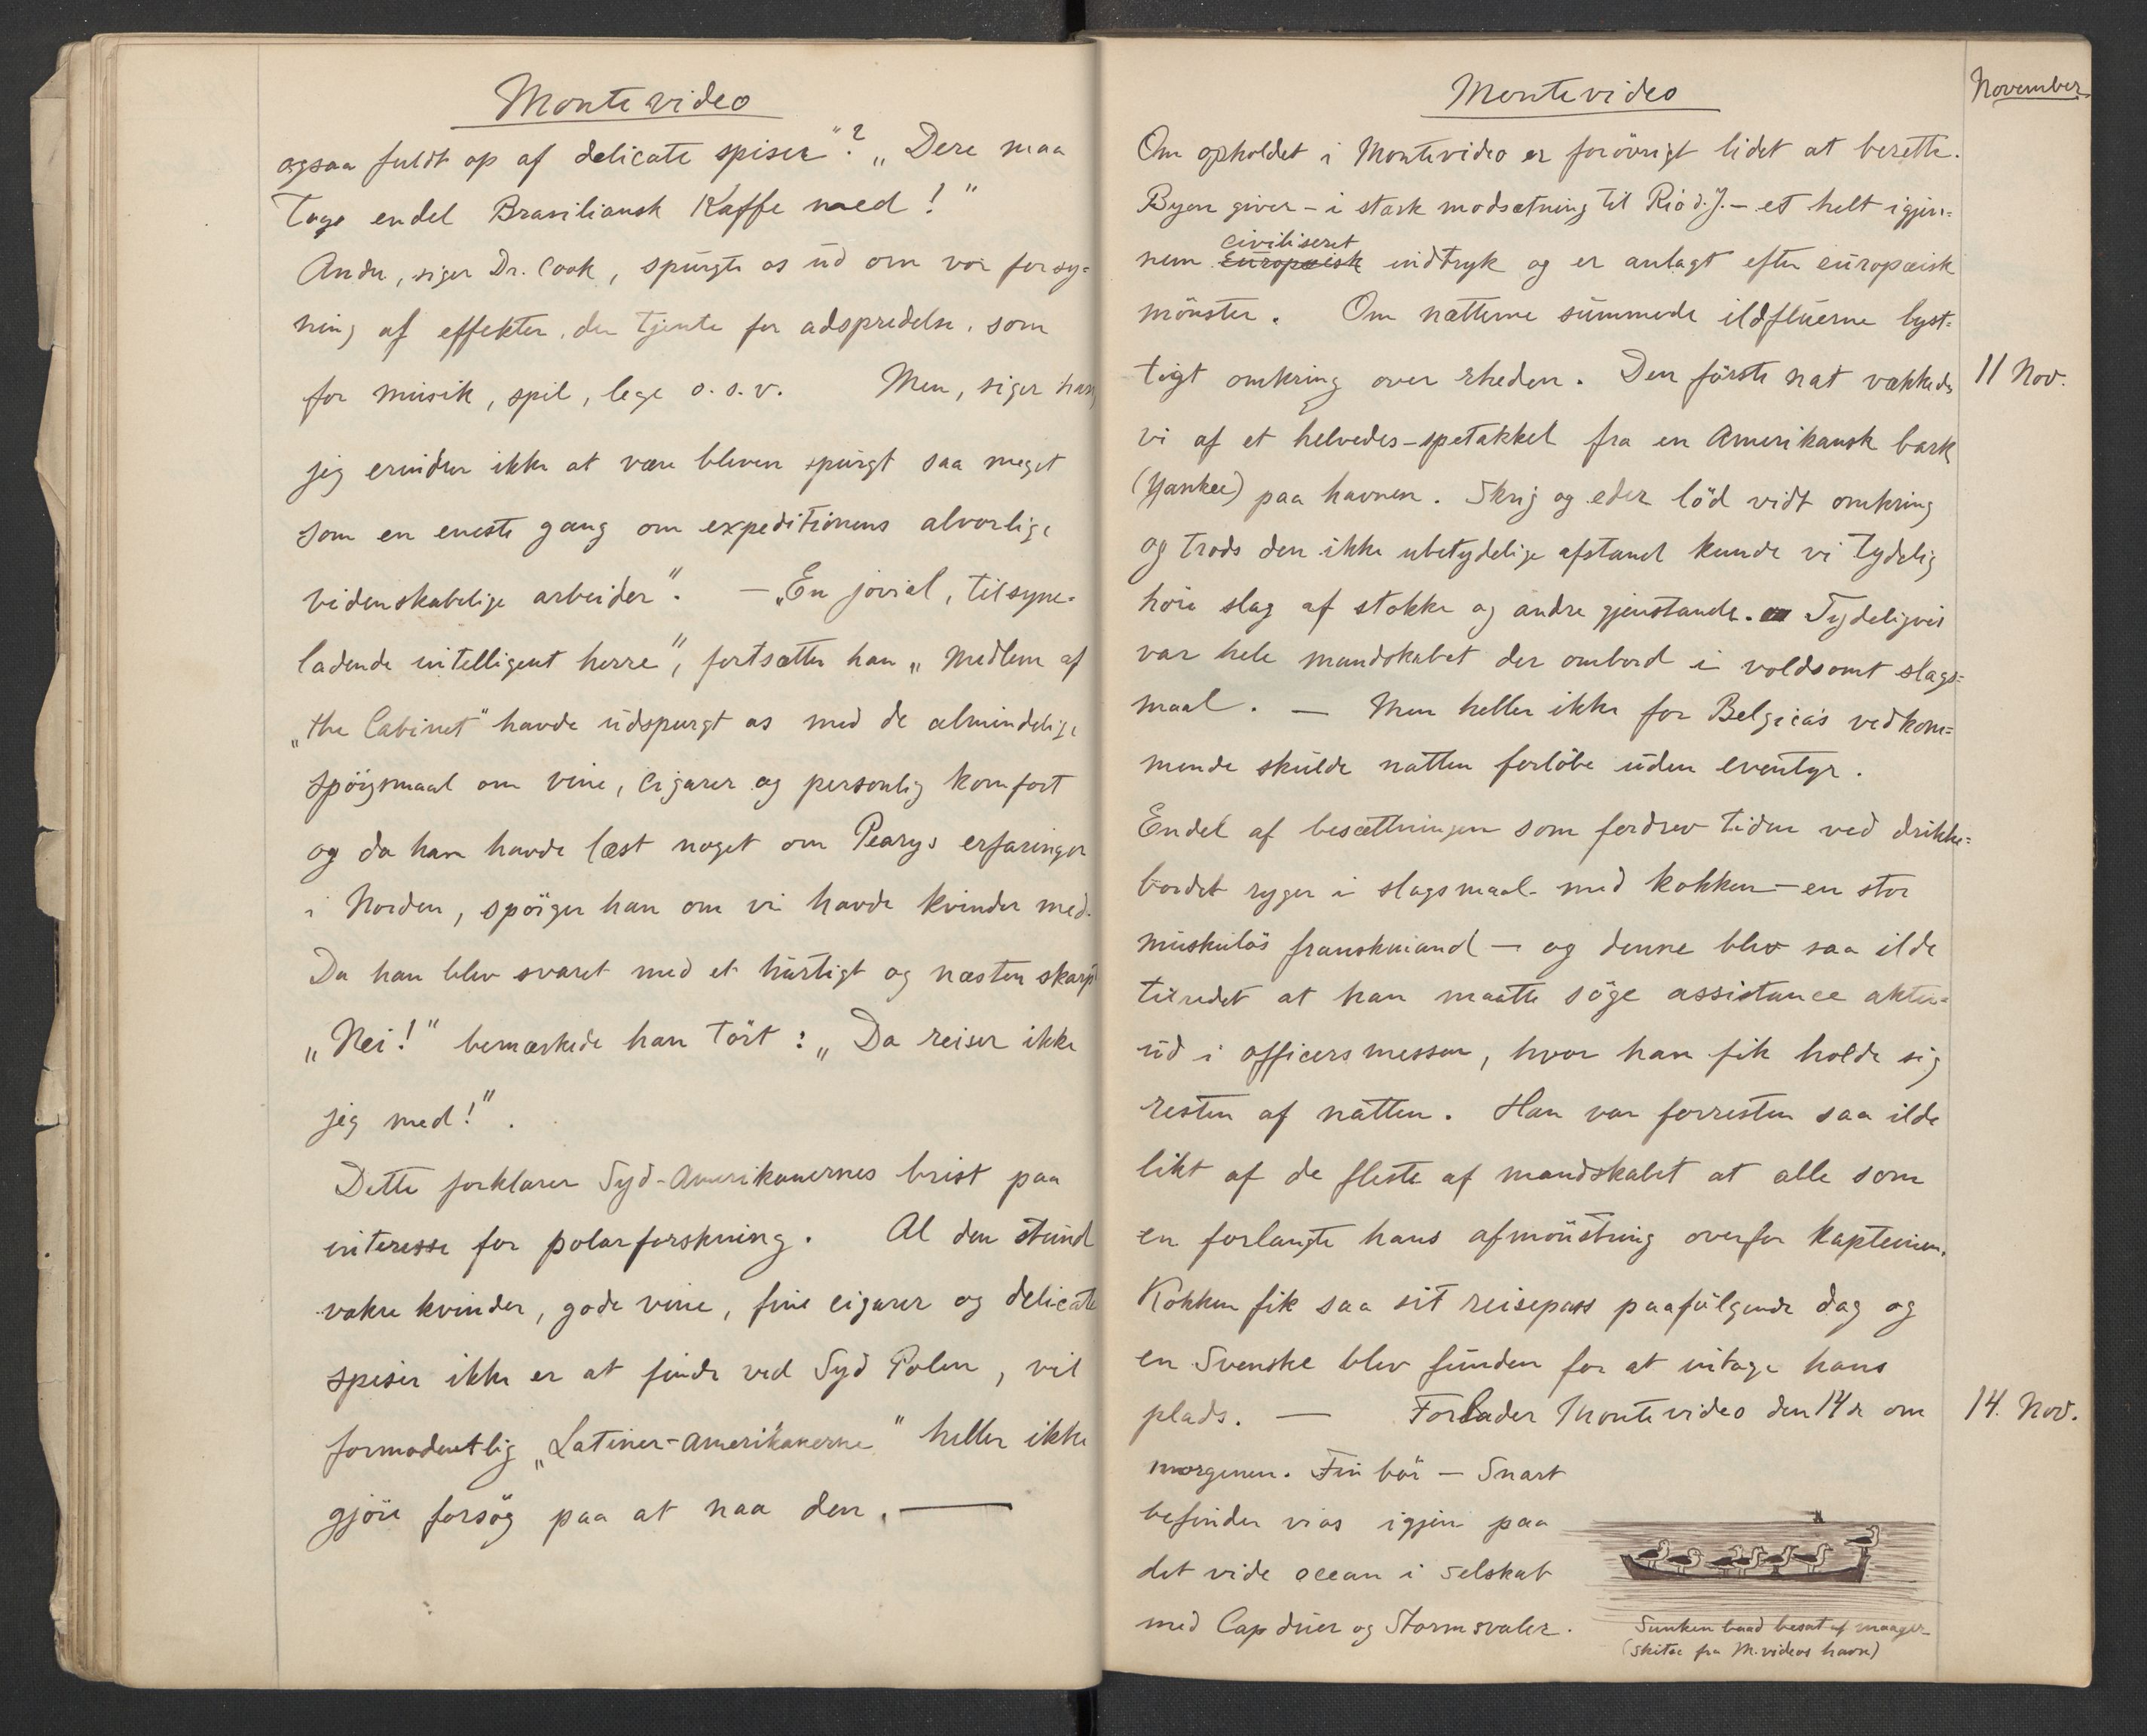 Montevideo
ogsaa fuldt op af delicate spiser"? „Dere maa
tage endel Brasiliansk Kaffe med!"
Andre, siger Dr. Cook, spurgte os ud om vor forsy-
ning af effekter, der tjente for adspredelse, som
for musik, spil, lege o.s.v. Men, siger han,
jeg erindrer ikke at være bleven spurgt saa meget
som en eneste gang om expeditionens alvorlige
videnskabelige arbeider". — „En jovial, tilsyne-
ladende intelligent herre", fortsætter han „Medlem af
„the Cabinet" havde udspurgt os med de almindelige
spörgsmaal om vine, cigarer og personlig komfort
og da han havde læst noget om Pearys erfaringer
i Norden, spörger han om vi havde kvinder med.
Da han blev svaret med et hurtigt og næsten skarpt
„Nei!" bemærkede han tört: „Da reiser ikke
jeg med!".
Dette forklarer Syd-Amerikanernes brist paa
interesse for polarforskning. Al den stund
vakre kvinder, gode vine, fine cigarer og delicate
spiser ikke er at finde ved Syd Polen, vil
formodentlig „Latiner-Amerikanerne" heller ikke
gjöre forsög paa at naa den. —
Montevideo
November
Om opholdet i Montevideo er forövrigt lidet at berette.
Byen giver – i stærk modsætning til Rio d. J. – et helt igjen-
civiliseret
nem Europæisk indtryk og er anlagt efter europæisk
mönster. Om nætterne summede ildfluerne lyst-
tigt omkring over rheden. Den förste nat vækkedes
11 Nov.
vi af et helvedes-spetakkel fra en Amerikansk bark
(Yankee) paa havnen. Skrig og eder löd vidt omkring
og trods den ikke ubetydelige afstand kunde vi tydelig
höre slag af stokke og andre gjenstande. Tydeligvis
var hele mandskabet der ombord i voldsomt slags-
maal. — Men heller ikke for Belgica's vedkom-
mende skulde natten forlöbe uden eventyr.
Endel af besætningen som fordrev tiden ved drikke-
bordet ryger i slagsmaal med kokken – en stor
muskulös franskmand – og denne blev saa ilde
tilredet at han maatte söge assistance akter-
ud i officersmessen, hvor han fik holde sig
resten af natten. Han var forresten saa ilde
likt af de fleste af mandskabet at alle som
en forlangte hans afmönstring overfor kapteinen.
Kokken fik saa sit reisepass paafölgende dag og
en Svenske blev funden for at intage hans
plads. — Forlader Montevideo den 14de om
14. Nov.
morgenen. Fin bör – Snart
befinder vi os igjen paa
det vide ocean i selskab
med Cap duer og Stormsvaler.
Sunken baad besat af maager
(skitse fra M.videos havn)